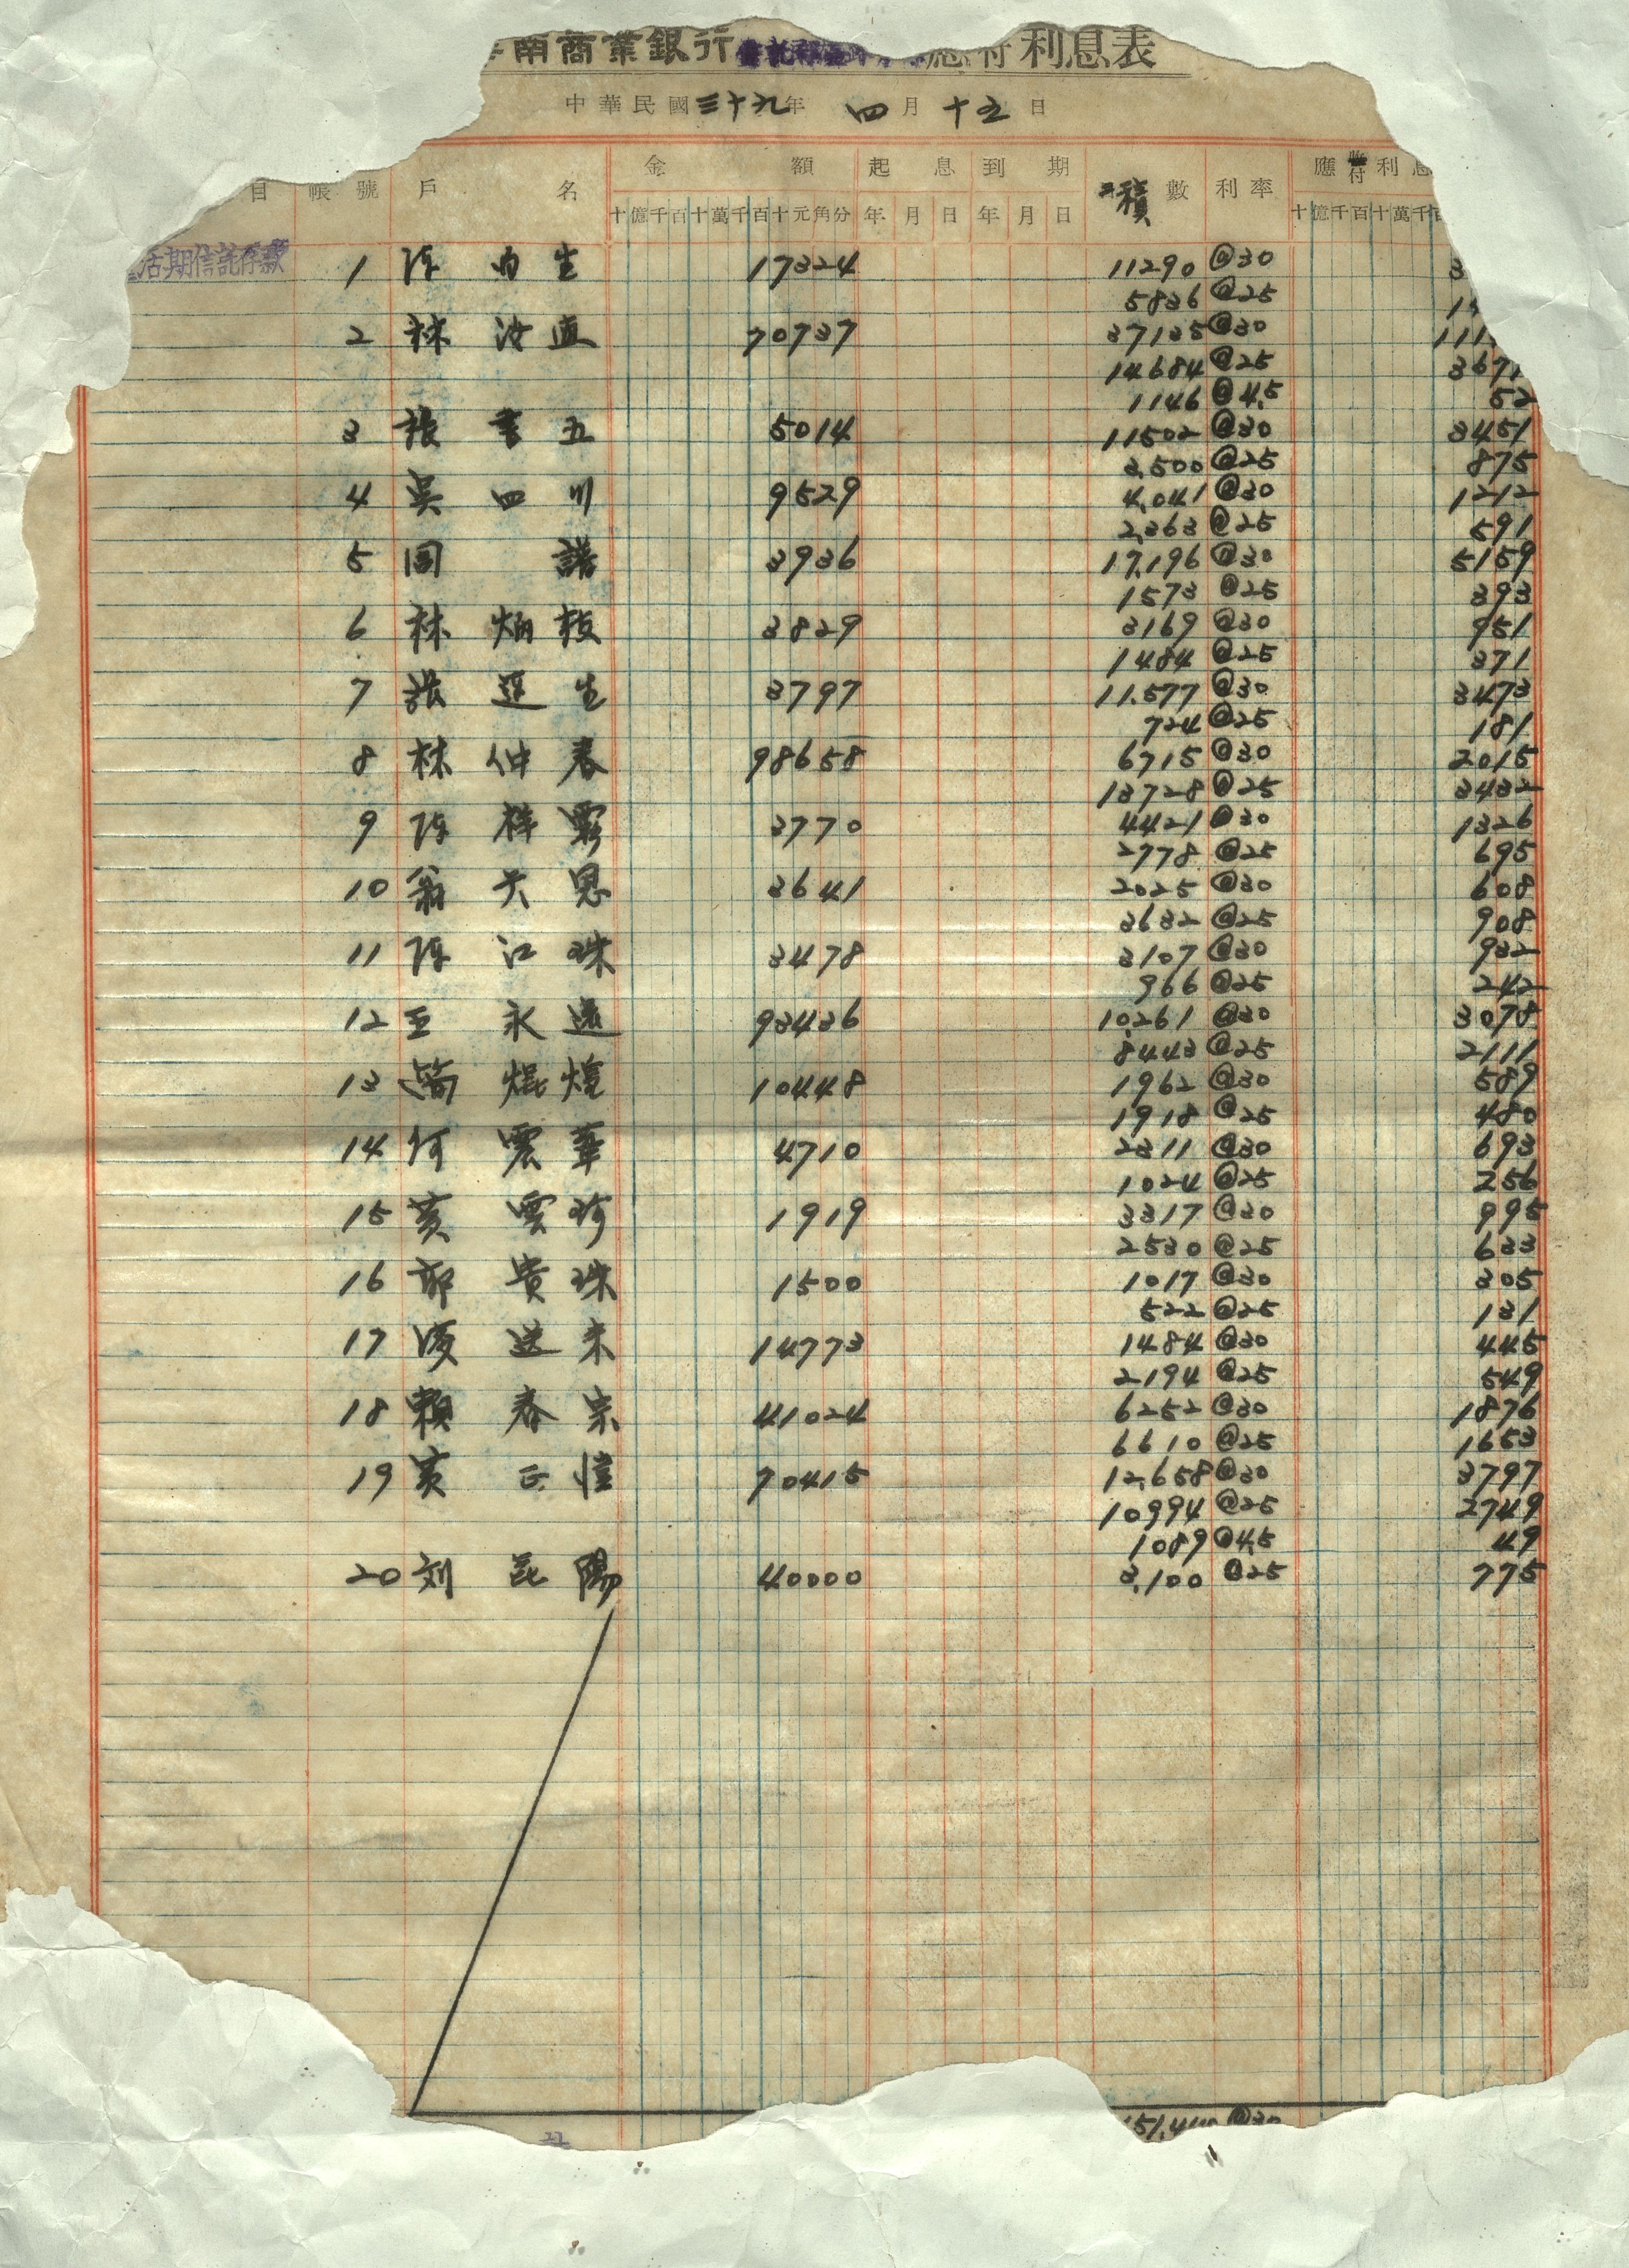 南商業銀行 應付利息表
中華民國三十九年 四月十五日
目 帳號 戶名 金額 起息到期 積數 利率 應付利息
十億千百十萬千百十元角分 年月日年月日 十億千百十萬千
活期信託存款 1 陳 生 17324 11290 @30
5836 @25
2 林汝直 70737 37135 @30
14684 @25
1146 @4.5 52
3 張書五 5014 11502 @30 3451
3,500 @25 875
4 吳四川 9529 4,041 @30 1212
2,363 @25 591
5 3936 17,196 @30 5159
1573 @25 393
6 林炳枝 3829 3169 @30 951
1484 @25 371
7 張莲生 3797 11,577 @30 3473
724 @25 181
8 林仲春 98658 6715 @30 2015
13728 @25 3432
9 陳 3770 4421 @30 1326
2778 @25 695
10 翁天恩 3641 2025 @30 608
3632 @25 908
11 陳江珠 3478 3107 @30 932
966 @25 242
12 王永遠 93436 10,261 @30 3078
8443 @25 2111
13 簡焜煌 10448 1962 @30 589
1918 @25 480
14 何震華 4710 2311 @30 693
1024 @25 256
15 黃雲珍 1919 3317 @30 995
2530 @25 633
16 郭貴珠 1500 1017 @30 305
522 @25 131
17 送来 14773 1484 @30 445
2194 @25 549
18 賴春宗 41024 6252 @30 1876
6610 @25 1653
19 黃正愷 70415 12,658 @30 3797
10994 @25 2749
1089 @4.5 49
20 刘昆陽 40000 3,100 @25 775